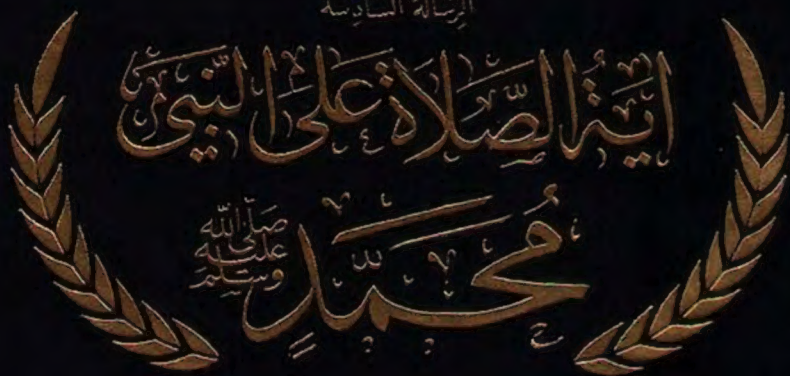 الرسالة السادسة
آيَةُ الصَّلَاةِ عَلَى النَّبِيِّ
مُحَمَّدٍ
صَلَّى اللَّه
عَلَيْهِ
وَسَلَّمَ